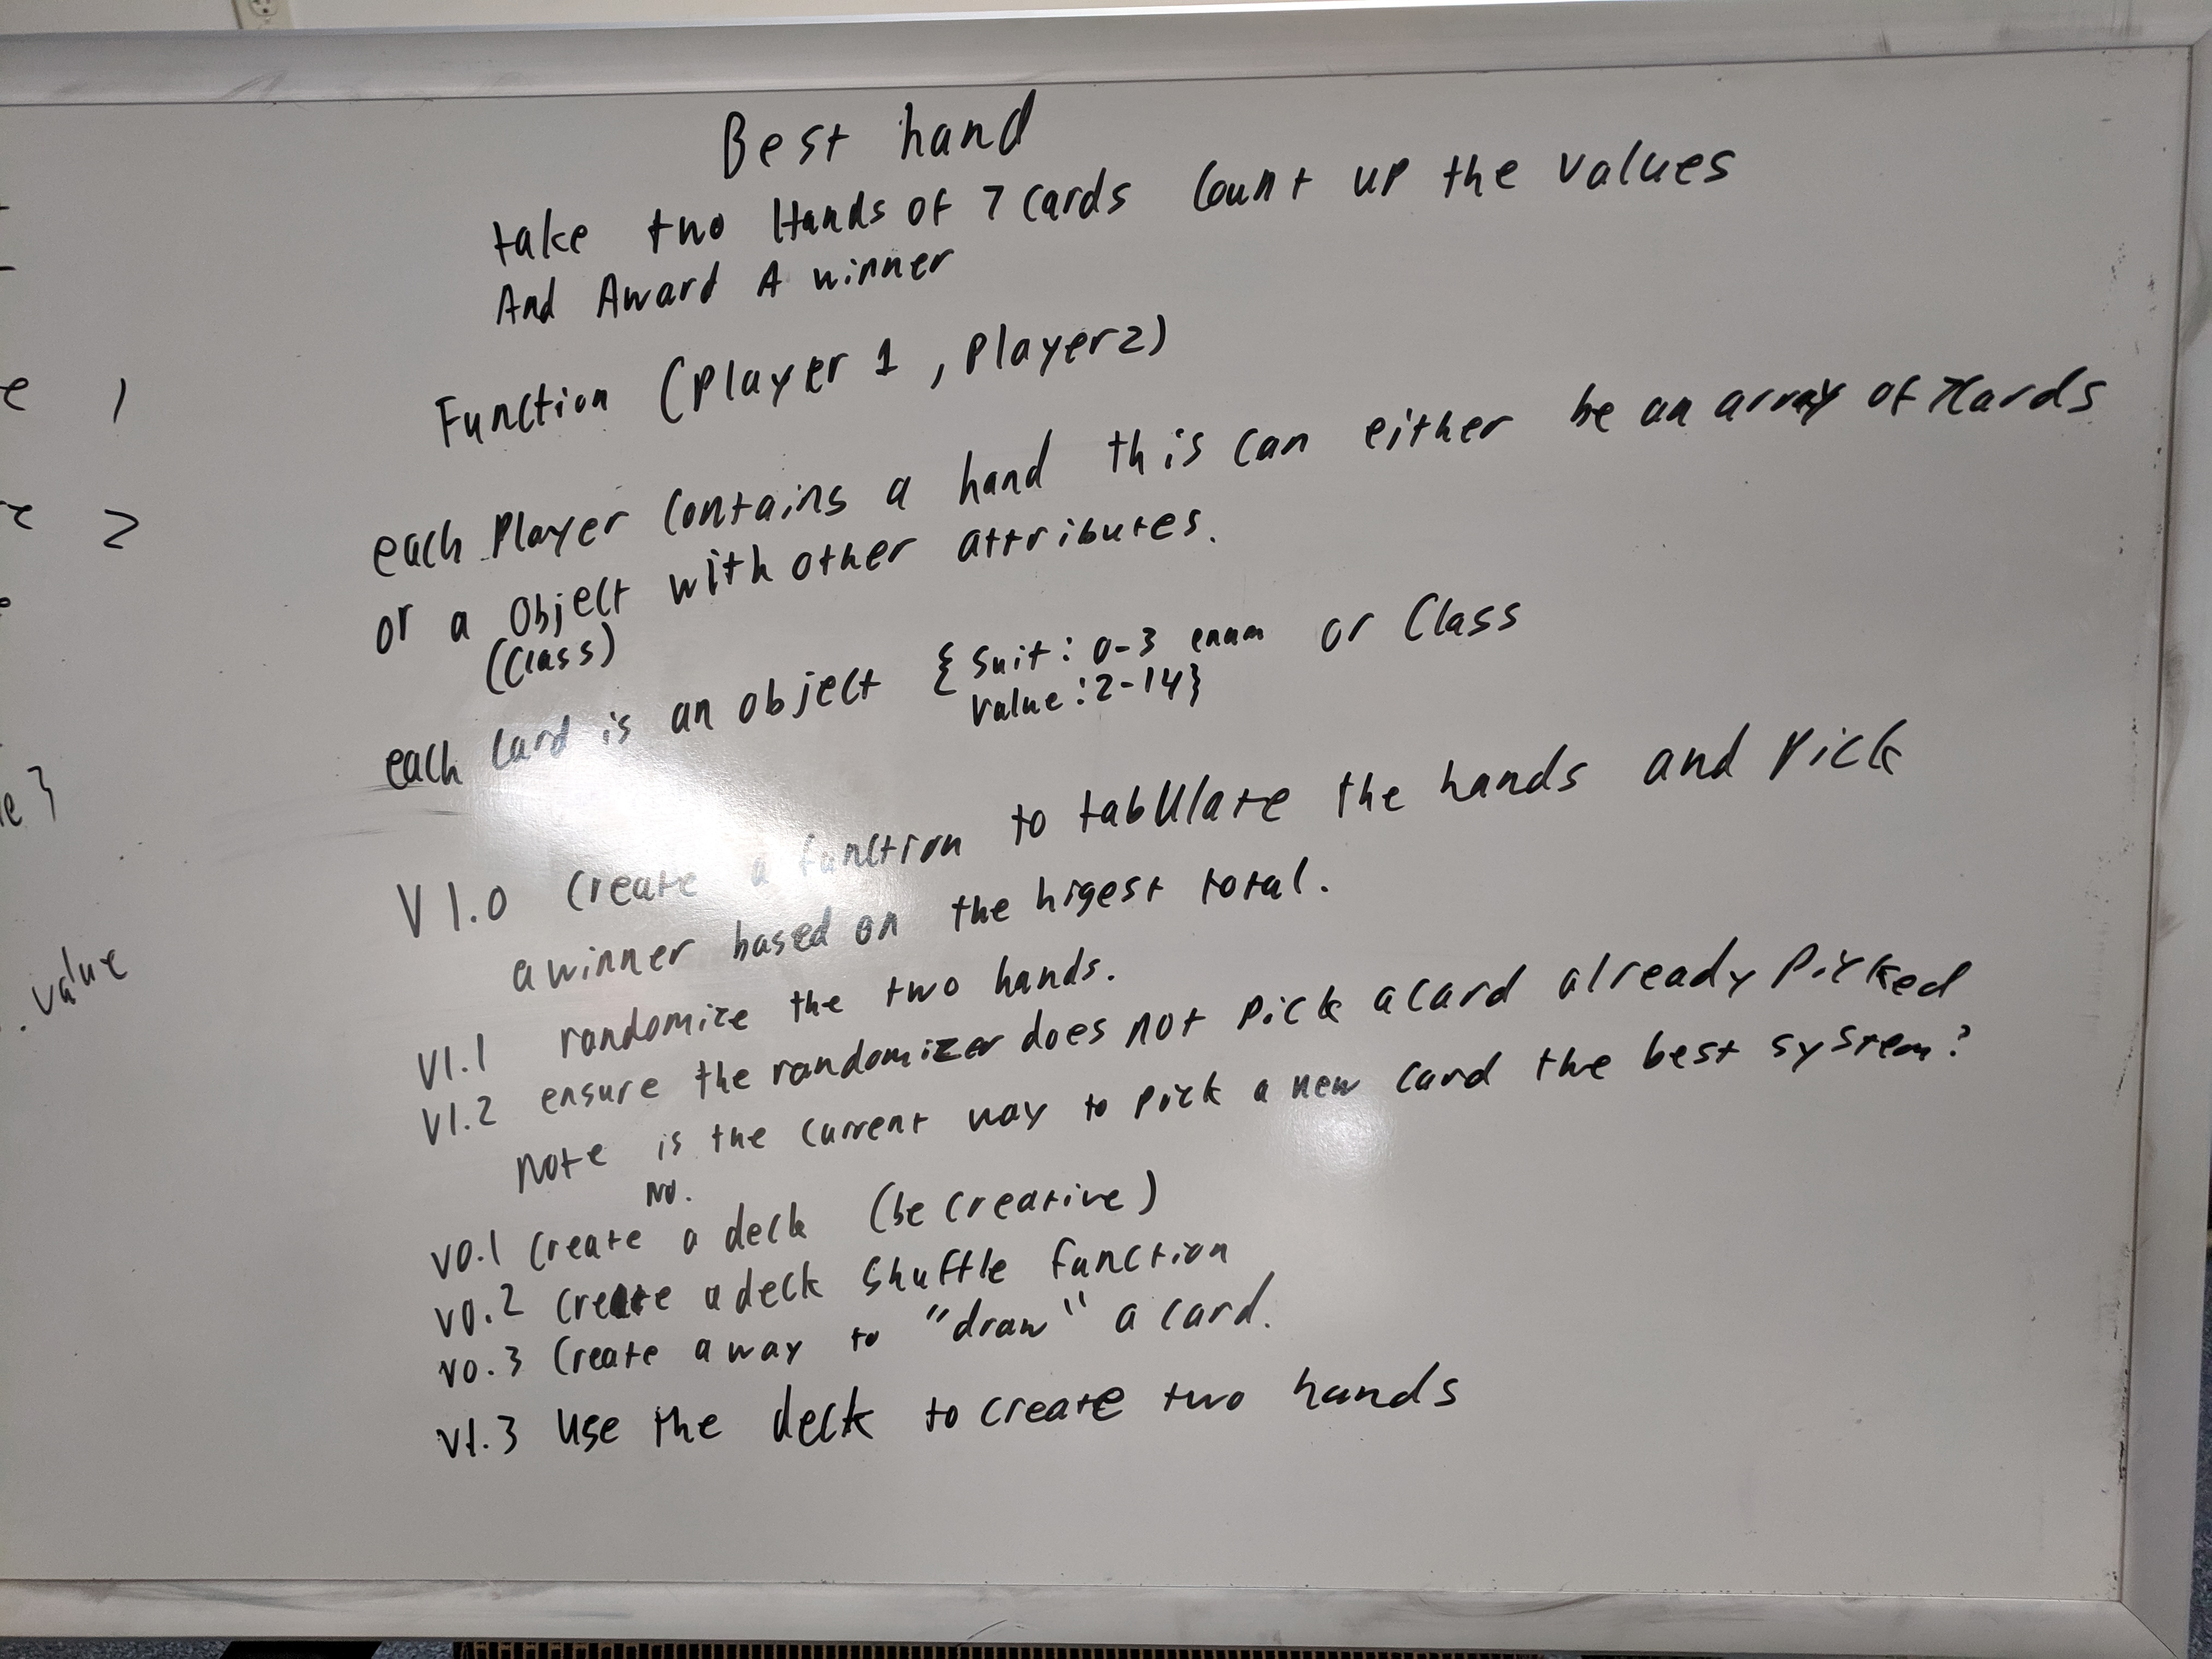 Best hand
take two Hands of 7 cards Count up the values
And Award A winner
Function (Player 1, Player2)
each Player Contains a hand this can either be an array of 7 Cards
or a Object with other attributes.
(Class)
each Card is an object { Suit: 0-3 enum or Class
value: 2-14}
V1.0 Create a function to tabUlate the hands and Pick
a winner based on the higest total.
V1.1 randomize the two hands.
V1.2 ensure the randomizer does not Pick a card already Picked
Note is the current way to Pick a new Card the best system?
No.
V0.1 Create a deck (be creative)
V0.2 Create a deck Shuffle function
V0.3 Create a way to "draw" a card.
V1.3 Use the deck to create two hands
1
2
e }
.value